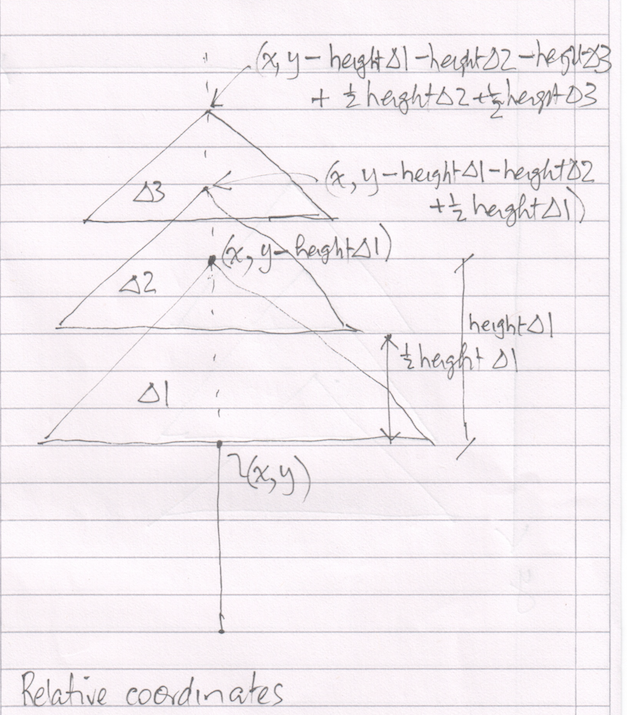 (x, y - height Δ1 - height Δ2 - height Δ3
+ ½ height Δ2 + ½ height Δ3
Δ3
(x, y - height Δ1 - height Δ2
+ ½ height Δ1)
(x, y - height Δ1)
Δ2
height Δ1
½ height Δ1
Δ1
(x, y)
Relative coordinates